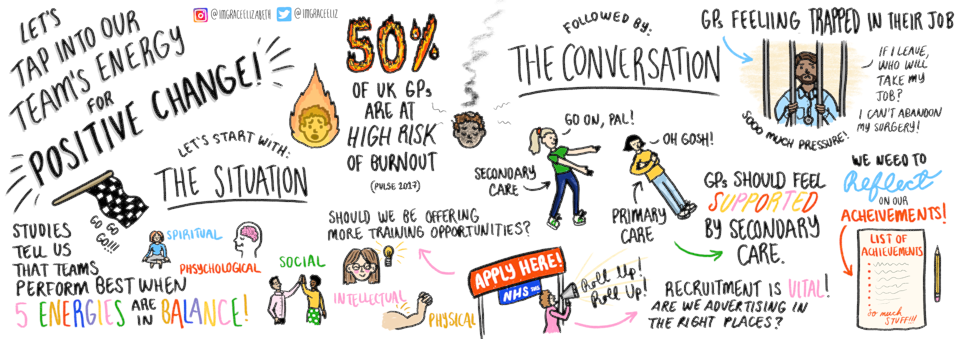 LET'S
TAP INTO OUR
TEAM'S ENERGY
FOR
POSITIVE CHANGE!
@IMGRACEELIZABETH @IMGRACEELIZ
50%
OF UK GPs
ARE AT
HIGH RISK
OF BURNOUT
(PULSE 2017)
LET'S START WITH:
THE SITUATION
GO GO
GO!!!
STUDIES
TELL US
THAT TEAMS
PERFORM BEST WHEN
5 ENERGIES ARE IN BALANCE!
SPIRITUAL
PHSYCHOLOGICAL
SOCIAL
INTELLECTUAL
PHYSICAL
SHOULD WE BE OFFERING
MORE TRAINING OPPORTUNITIES?
FOLLOWED BY:
THE CONVERSATION
GO ON, PAL!
OH GOSH!
SECONDARY
CARE
PRIMARY
CARE
GPs SHOULD FEEL
SUPPORTED
BY SECONDARY
CARE.
APPLY HERE!
NHS
Roll Up!
Roll Up!
RECRUITMENT IS VITAL!
ARE WE ADVERTISING IN
THE RIGHT PLACES?
GPs FEELING TRAPPED IN THEIR JOB
IF I LEAVE,
WHO WILL
TAKE MY
JOB?
I CAN'T ABANDON
MY SURGERY!
SOOO MUCH PRESSURE!
WE NEED TO
Reflect
ON OUR
ACHEIVEMENTS!
LIST OF
ACHIEVEMENTS
so much
STUFF!!!